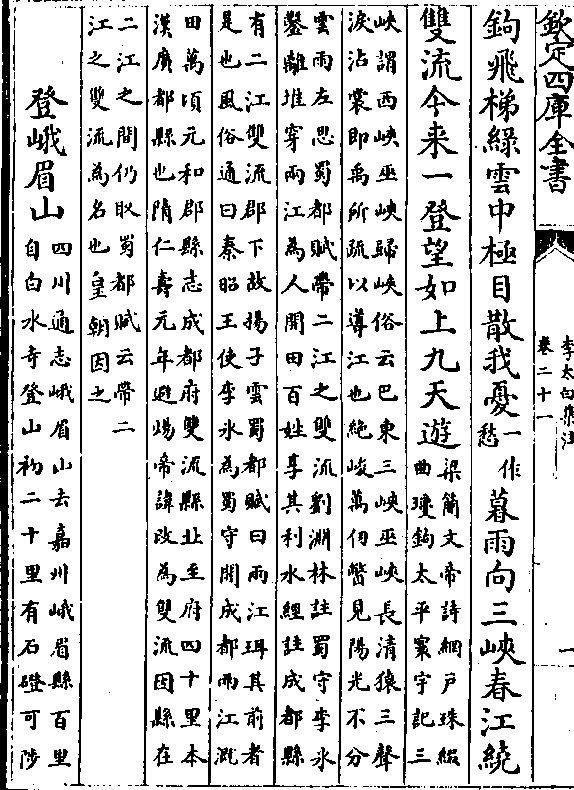 欽定四庫全書
李太白集注
卷二十一
一
鉤飛梯綠雲中極目散我憂
一作
愁
暮雨向三峽春江繞
雙流今来一登望如上九天遊
梁簡文帝詩網户珠綴
曲瓊鉤太平寰宇記三
峽謂西峽巫峽歸峽俗云巴東三峽巫峽長清猿三聲
淚沾裳即禹所疏以導江也絶峻萬仞瞥見陽光不分
雲雨左思蜀都賦帶二江之雙流劉淵林註蜀守李氷
鑿離堆穿兩江為人開田百姓享其利水經註成都縣
有二江雙流郡下故揚子雲蜀都賦曰兩江珥其前者
是也風俗通曰秦昭王使李氷為蜀守開成都兩江溉
田萬頃元和郡縣志成都府雙流縣北至府四十里本
漢廣都縣也隋仁壽元年避煬帝諱改為雙流因縣在
二江之間仍取蜀都賦云帶二
江之雙流為名也皇朝因之
登峨眉山
四川通志峨眉山去嘉州峨眉縣百里
自白水寺登山初二十里有石磴可陟